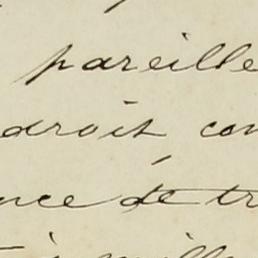 pareille
droit con
nce de tr